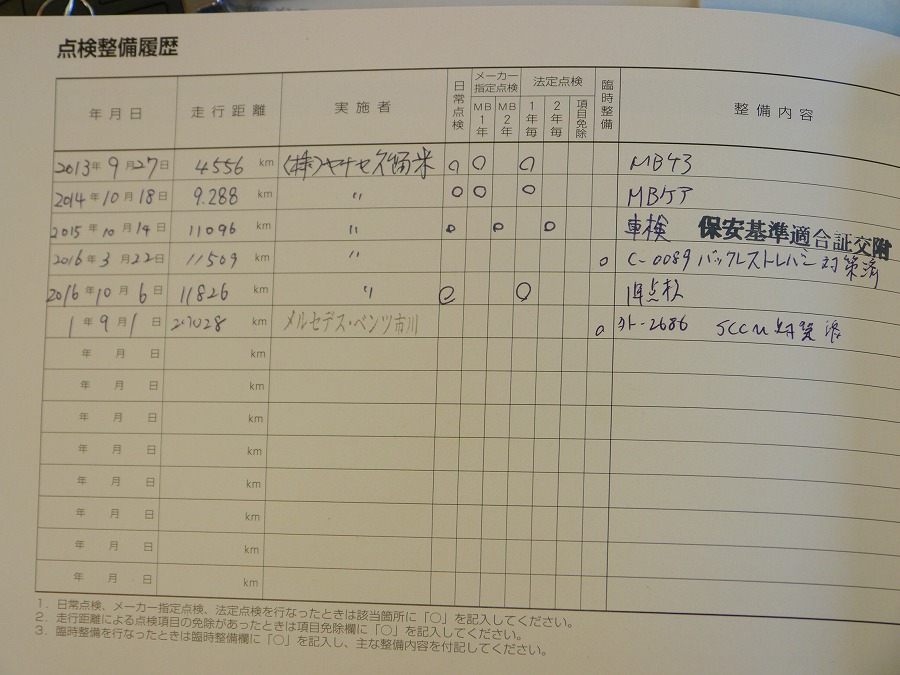 点検整備履歴
年月日 走行距離 実施者 日常点検 メーカー指定点検 MB1年 MB2年 法定点検 1年毎 2年毎 項目免除 臨時整備 整備内容
2013年9月27日 4556 km (株)ヤナセ久留米 ○ ○ ○ MBケア
2014年10月18日 9.288 km 〃 ○ ○ ○ MBケア
2015年10月14日 11096 km 〃 ○ ○ ○ 車検 保安基準適合証交附
2016年3月22日 11509 km 〃 ○ C-0089 バックレストレバー対策済
2016年10月6日 11826 km 〃 ○ ○ 1年点検
1年9月1日 27028 km メルセデス・ベンツ市川 ○ 外-2686 SCCM 対策済
年 月 日 km
年 月 日 km
年 月 日 km
年 月 日 km
年 月 日 km
年 月 日 km
年 月 日 km
年 月 日 km
1. 日常点検、メーカー指定点検、法定点検を行なったときは該当箇所に「○」を記入してください。
2. 走行距離による点検項目の免除があったときは項目免除欄に「○」を記入してください。
3. 臨時整備を行なったときは臨時整備欄に「○」を記入し、主な整備内容を付記してください。